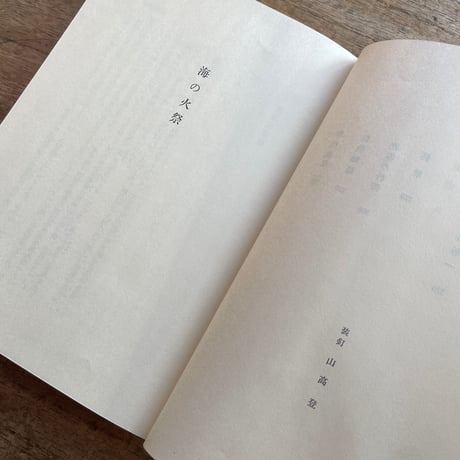 装釘 山高登
海の火祭